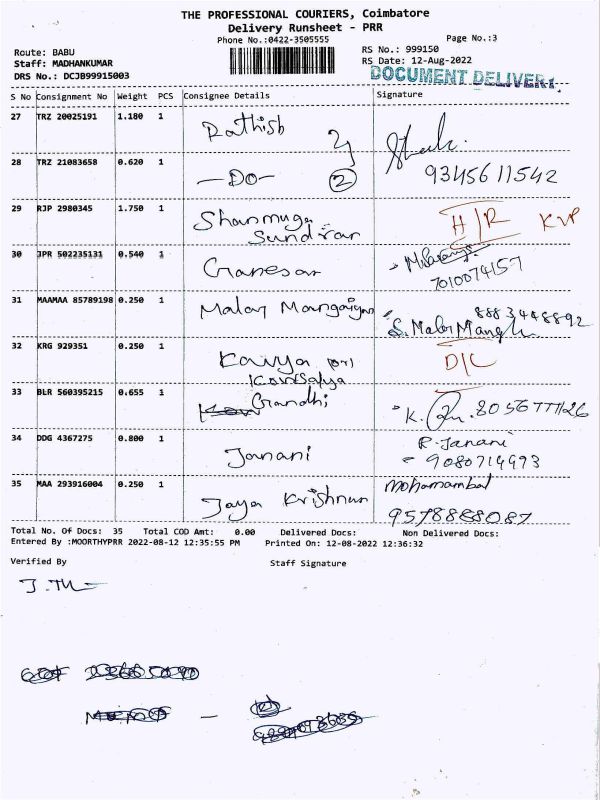 THE PROFESSIONAL COURIERS, Coimbatore
Delivery Runsheet - PRR
Phone No.:0422-3505555
Page No.:3
Route: BABU
RS No.: 999150
Staff: MADHANKUMAR
RS Date: 12-Aug-2022
DRS No.: DCJB99915003
DOCUMENT DELIVERY
S No Consignment No Weight PCS Consignee Details Signature
27 TRZ 20025191 1.180 1 Rathish
28 TRZ 21083658 0.620 1 —DO— 2 9345611542
29 RJP 2980345 1.750 1 Shanmuga H/R KVP
Sundran
30 JPR 502235131 0.540 1 Ganesan
7010074157
31 MAAMAA 85789198 0.250 1 Malar Mangaiyan 8883448892
S. Malar
32 KRG 929351 0.250 1 Kaviya (or) D/C
Kowsalya
33 BLR 560395215 0.655 1 Gandhi K. 8056777126
34 DDG 4367275 0.800 1 Janani R. Janani
9080714993
35 MAA 293916004 0.250 1 Jaya Krishnan Mohanambal
9578888087
Total No. Of Docs: 35 Total COD Amt: 0.00 Delivered Docs: Non Delivered Docs:
Entered By :MOORTHYPRR 2022-08-12 12:35:55 PM Printed On: 12-08-2022 12:36:32
Verified By Staff Signature